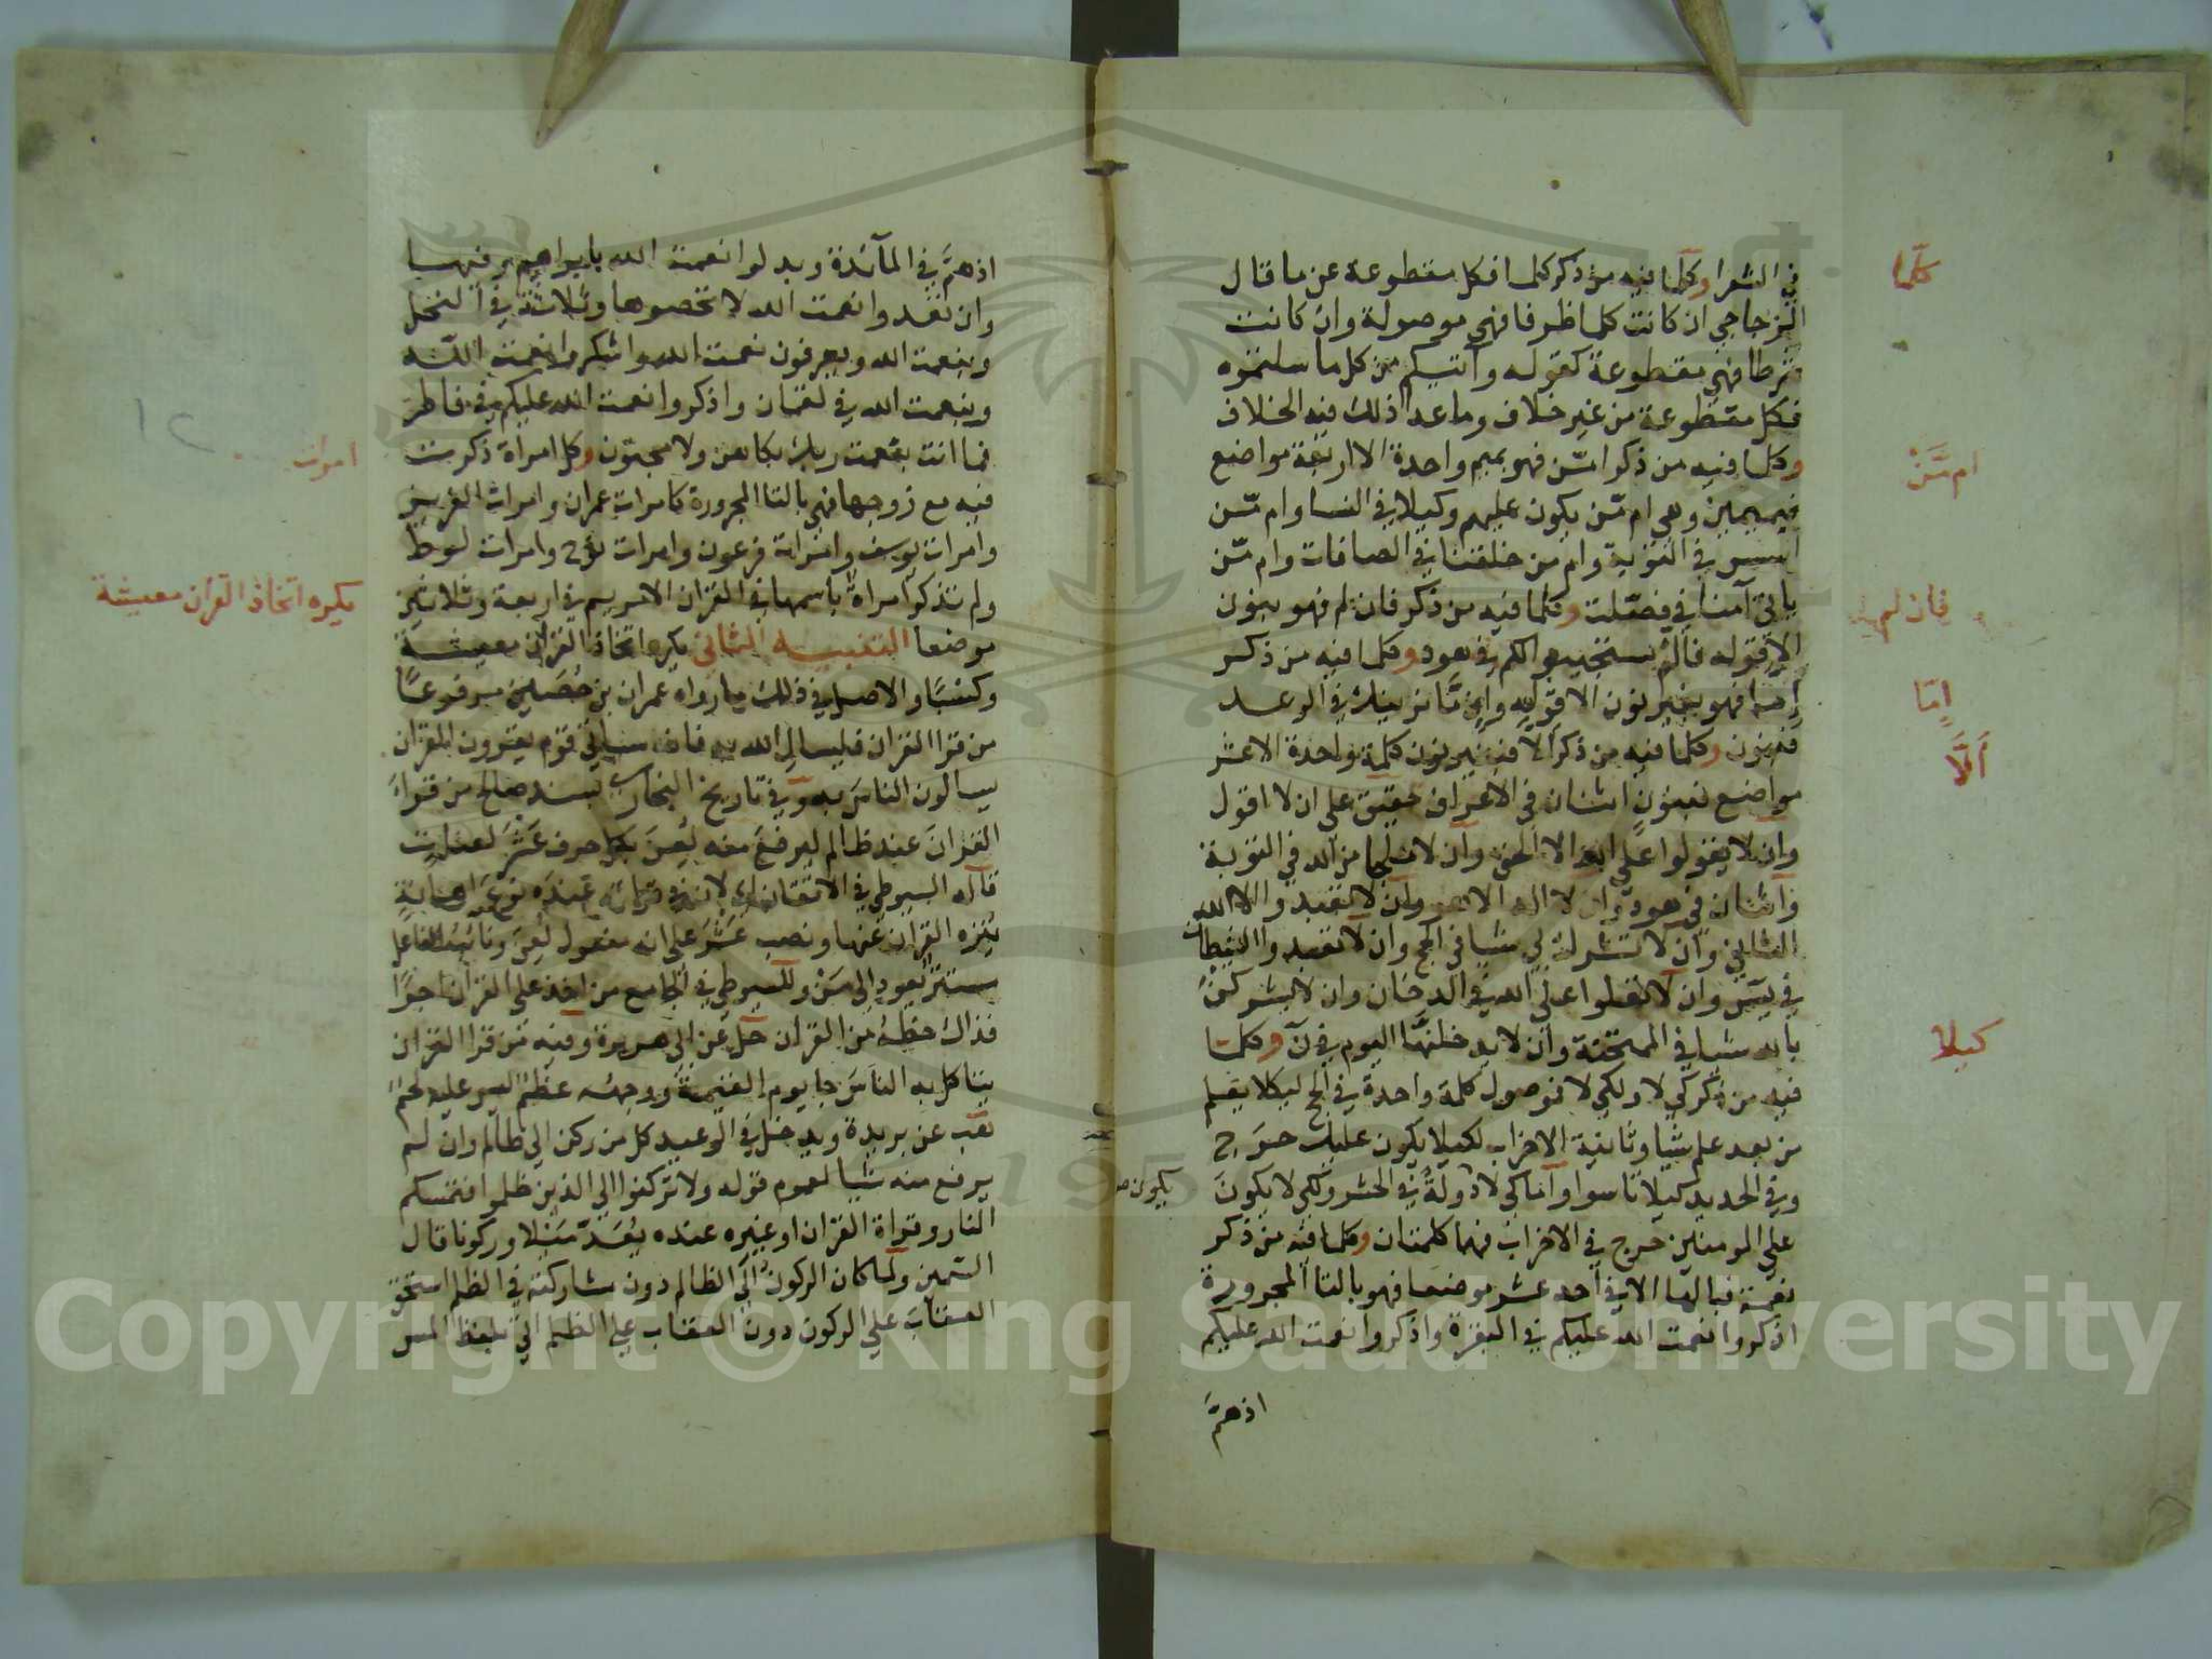 في الشعرا وكلما فيه من ذكر كلما فكل مقطوعة عن ما قال
الزجاجي ان كانت كلما ظرفا فهي موصولة وان كانت
شرطا فهي مقطوعة كقوله وآتيكم من كل ما سلتموه
فكل مقطوعة من غير خلاف وما عدا ذلك فيه الخلاف
وكلما فيه من ذكر امّن فهو بميم واحدة الا اربعة مواضع
فبميمين وهي ام مّن يكون عليهم وكيلا في النسا وام مّن
اسس في التوبة وام من خلقنا في الصافات وام مّن
ياتي آمنا في فصّلت وكلما فيه من ذكر فان لم فهو بنون
الا قوله فالّم يستجيبوا لكم في هود وكلما فيه من ذكر
إما فهو بغير نون الا قوله وإن مّا نرينك في الرعد
فبنون وكلما فيه من ذكر ألا فبغير نون كلمة واحدة الا عشر
مواضع فبنون اثنان في الاعراف حقيق على ان لا اقول
وان لا يقولوا على الله الا الحق وان لا ملجا من الله في التوبة
واثنان في هود وان لا اله الا هو وان لا تعبدوا الا الله
الثاني وان لا تشرك بي شيا في الحج وان لا تعبدوا الشيطان
في يسّ وان لا تعلوا على الله في الدخان وان لا يشركن
بالله شيا في الممتحنة وان لا يدخلنها اليوم في نّ وكلما
فيه من ذكر كي لا ولكي لا فموصول كلمة واحدة في الحج لكيلا يعلم
من بعد علم شيا وثانية الاحزاب لكيلا يكون عليك حرج
وفي الحديد لكيلا تاسوا واما كي لا دولة في الحشر ولكي لا يكون
على المومنين حرج في الاحزاب فهما كلمتان وكلما فيه من ذكر
نعمة فبالها الا في احد عشر موضعا فهو بالتا المجرورة
اذكروا نعمت الله عليكم في البقرة واذكروا نعمت الله عليكم
اذ همّ
كلّما
ام مّن
فان لم
إمّا
ألّا
كيلا
يكون
اذ همّ في المآئدة وبدلوا نعمت الله بابراهيم وفيها
وان تعدوا نعمت الله لا تحصوها وثلاثة في النحل
وبنعمت الله ويعرفون نعمت الله واشكروا نعمت الله
وبنعمت الله في لقمان واذكروا نعمت الله عليكم في فاطر
فما انت بنعمت ربك بكاهن ولا مجنون وكل امراة ذكرت
فيه مع زوجها فهي بالتا المجرورة كامرات عمران وامرات العزيز
وامرات يوسف وامرات فرعون وامرات نوح وامرات لوط
ولم تذكر امراة باسمها في القران الا مريم في اربعة وثلاثين
موضعا التنبيه الثاني يكره اتخاذ القران معيشة
وكسبًا والاصل في ذلك ما رواه عمران بن حُصَين مرفوعًا
من قرا القران فليسال الله به فانه سياتي قوم يقرون القران
يسالون الناس به وفي تاريخ البخاري بسند صالح من قرا
القران عند ظالم ليرفع منه لُعِنَ بكل حرف عَشْرَ لعنات
قاله السيوطي في الاتقان اي لان في قراته عنده نوع اهانة
يُنزه القران عنها ونصب عَشْرَ على انه مفعول لُعِنَ ونائب الفاعل
مستتر يعود الى مَنْ وللسيوطي في الجامع من اخذ على القران اجرًا
فذاك حظه من القران حل عن ابي هريرة وفيه من قرا القران
يتاكل به الناس جا يوم القيمة ووجهه عظم ليس عليه لحم
هب عن بريدة ويدخل في الوعيد كل من ركن الى ظالم وان لم
يرفع منه شيا لعموم قوله ولا تركنوا الى الذين ظلموا فتمسكم
النار وقراة القران او غيره عنده يُعَدّ مَيْلا وركونا قال
السّمين ولما كان الركون الى الظالم دون مشاركته في الظلم استحق
العقاب على الركون دون العقاب على الظلم اتى بلفظ المس
امرات
يكره اتخاذ القران معيشة
١٢
Copyright © King Saud University
1957